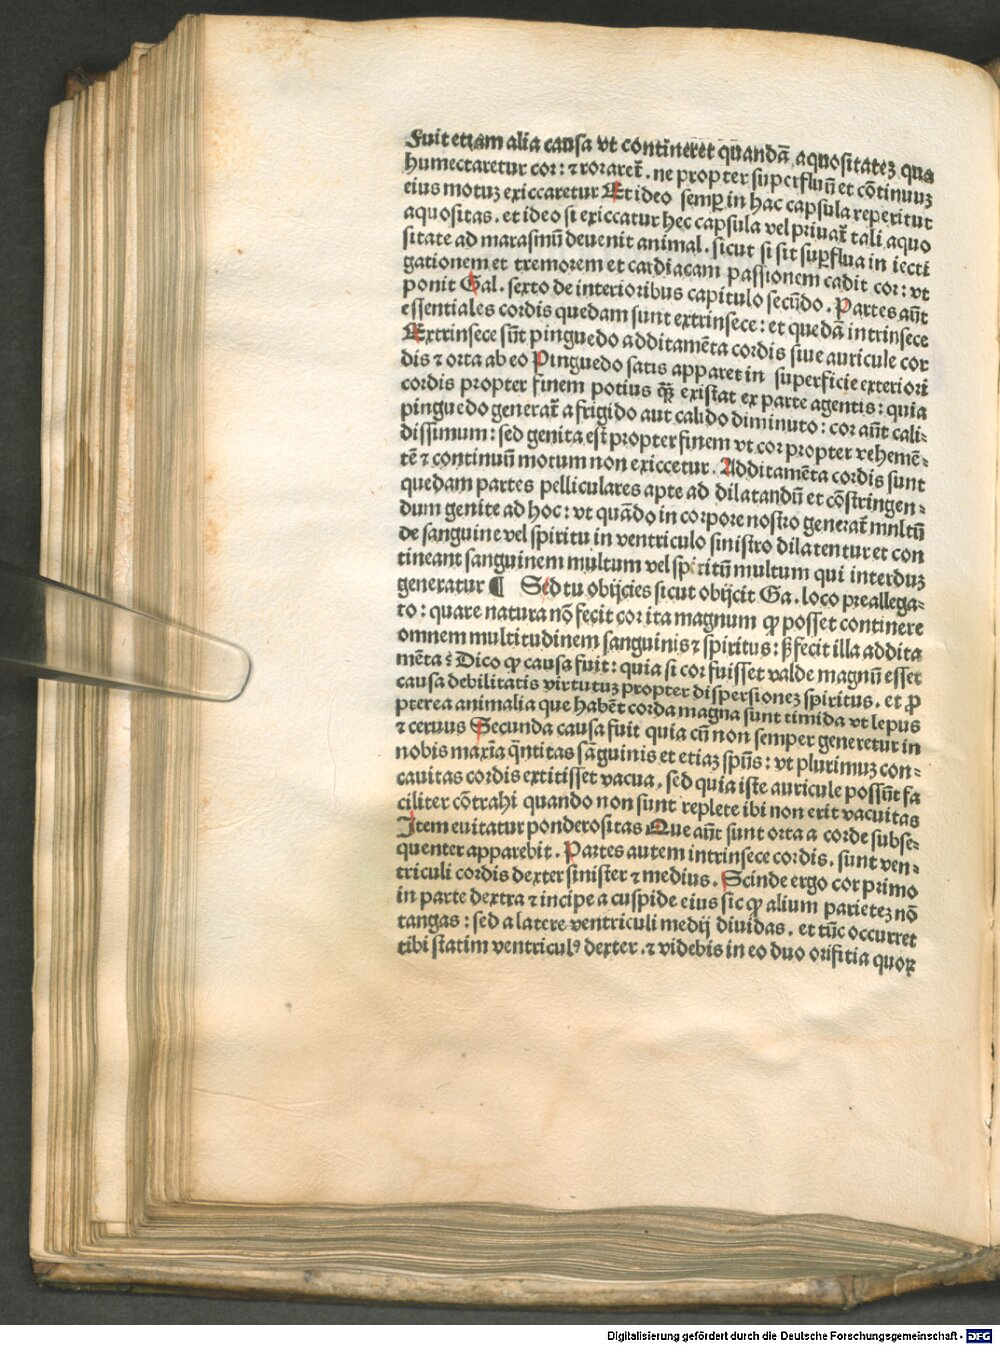 Fuit etiam alia causa vt contineret quandā aquositatez qua
humectaretur cor: ⁊ roraret̄. ne propter superfluū et cōtinuuz
eius motuz exiccaretur Et ideo semꝑ in hac capsula reperitut
aquositas. et ideo si exiccatur hec capsula vel priuat̄ tali aquo
sitate ad marasmū deuenit animal. sicut si sit suꝑflua in iecti
gationem et tremorem et cardiacam passionem cadit cor: vt
ponit Gal. sexto de interioribus capitulo secūdo. Partes aūt
essentiales cordis quedam sunt extrinsece: et quedā intrinsece
Extrinsece sūt pinguedo additamēta cordis siue auricule cor
dis ⁊ orta ab eo Pinguedo satis apparet in superficie exteriori
cordis propter finem potius qꝫ existat ex parte agentis: quia
pinguedo generat̄ a frigido aut calido diminuto: cor aūt cali⸗
dissimum: sed genita est propter finem vt cor propter vehemē⸗
tē ⁊ continuū motum non exiccetur. Additamēta cordis sunt
quedam partes pelliculares apte ad dilatandū et cōstringen⸗
dum genite ad hoc: vt quādo in corpore nostro generat̄ mnltū
de sanguine vel spiritu in ventriculo sinistro dilatentur et con
tineant sanguinem multum vel spiritū multum qui interduz
generatur ¶ Sed tu obijcies sicut obijcit Ga. loco preallega⸗
to: quare natura nō fecit cor ita magnum ꝙ posset continere
omnem multitudinem sanguinis ⁊ spiritus: ꝭ fecit illa addita
mēta: Dico ꝙ causa fuit: quia si cor fuisset valde magnū esset
causa debilitatis virtutuz propter dispersionez spiritus. et ꝓ
pterea animalia que habēt corda magna sunt timida vt lepus
⁊ ceruus Secunda causa fuit quia cū non semper generetur in
nobis maxīa q̄ntitas sāguinis et etiaz spūs: vt plurimuz con⸗
cauitas cordis extitisset vacua, sed quia iste auricule possūt fa
ciliter cōtrahi quando non sunt replete ibi non erit vacuitas
Item euitatur ponderositas Que aūt sunt orta a corde subse⸗
quenter apparebit. Partes autem intrinsece cordis. sunt ven⸗
triculi cordis dexter sinister ⁊ medius. Scinde ergo cor primo
in parte dextra ⁊ incipe a cuspide eius sic ꝙ alium parietez nō
tangas: sed a latere ventriculi medij diuidas. et tūc occurret
tibi statim ventriculꝰ dexter. ⁊ videbis in eo duo orifitia quoꝝ
Digitalisierung gefördert durch die Deutsche Forschungsgemeinschaft - DFG